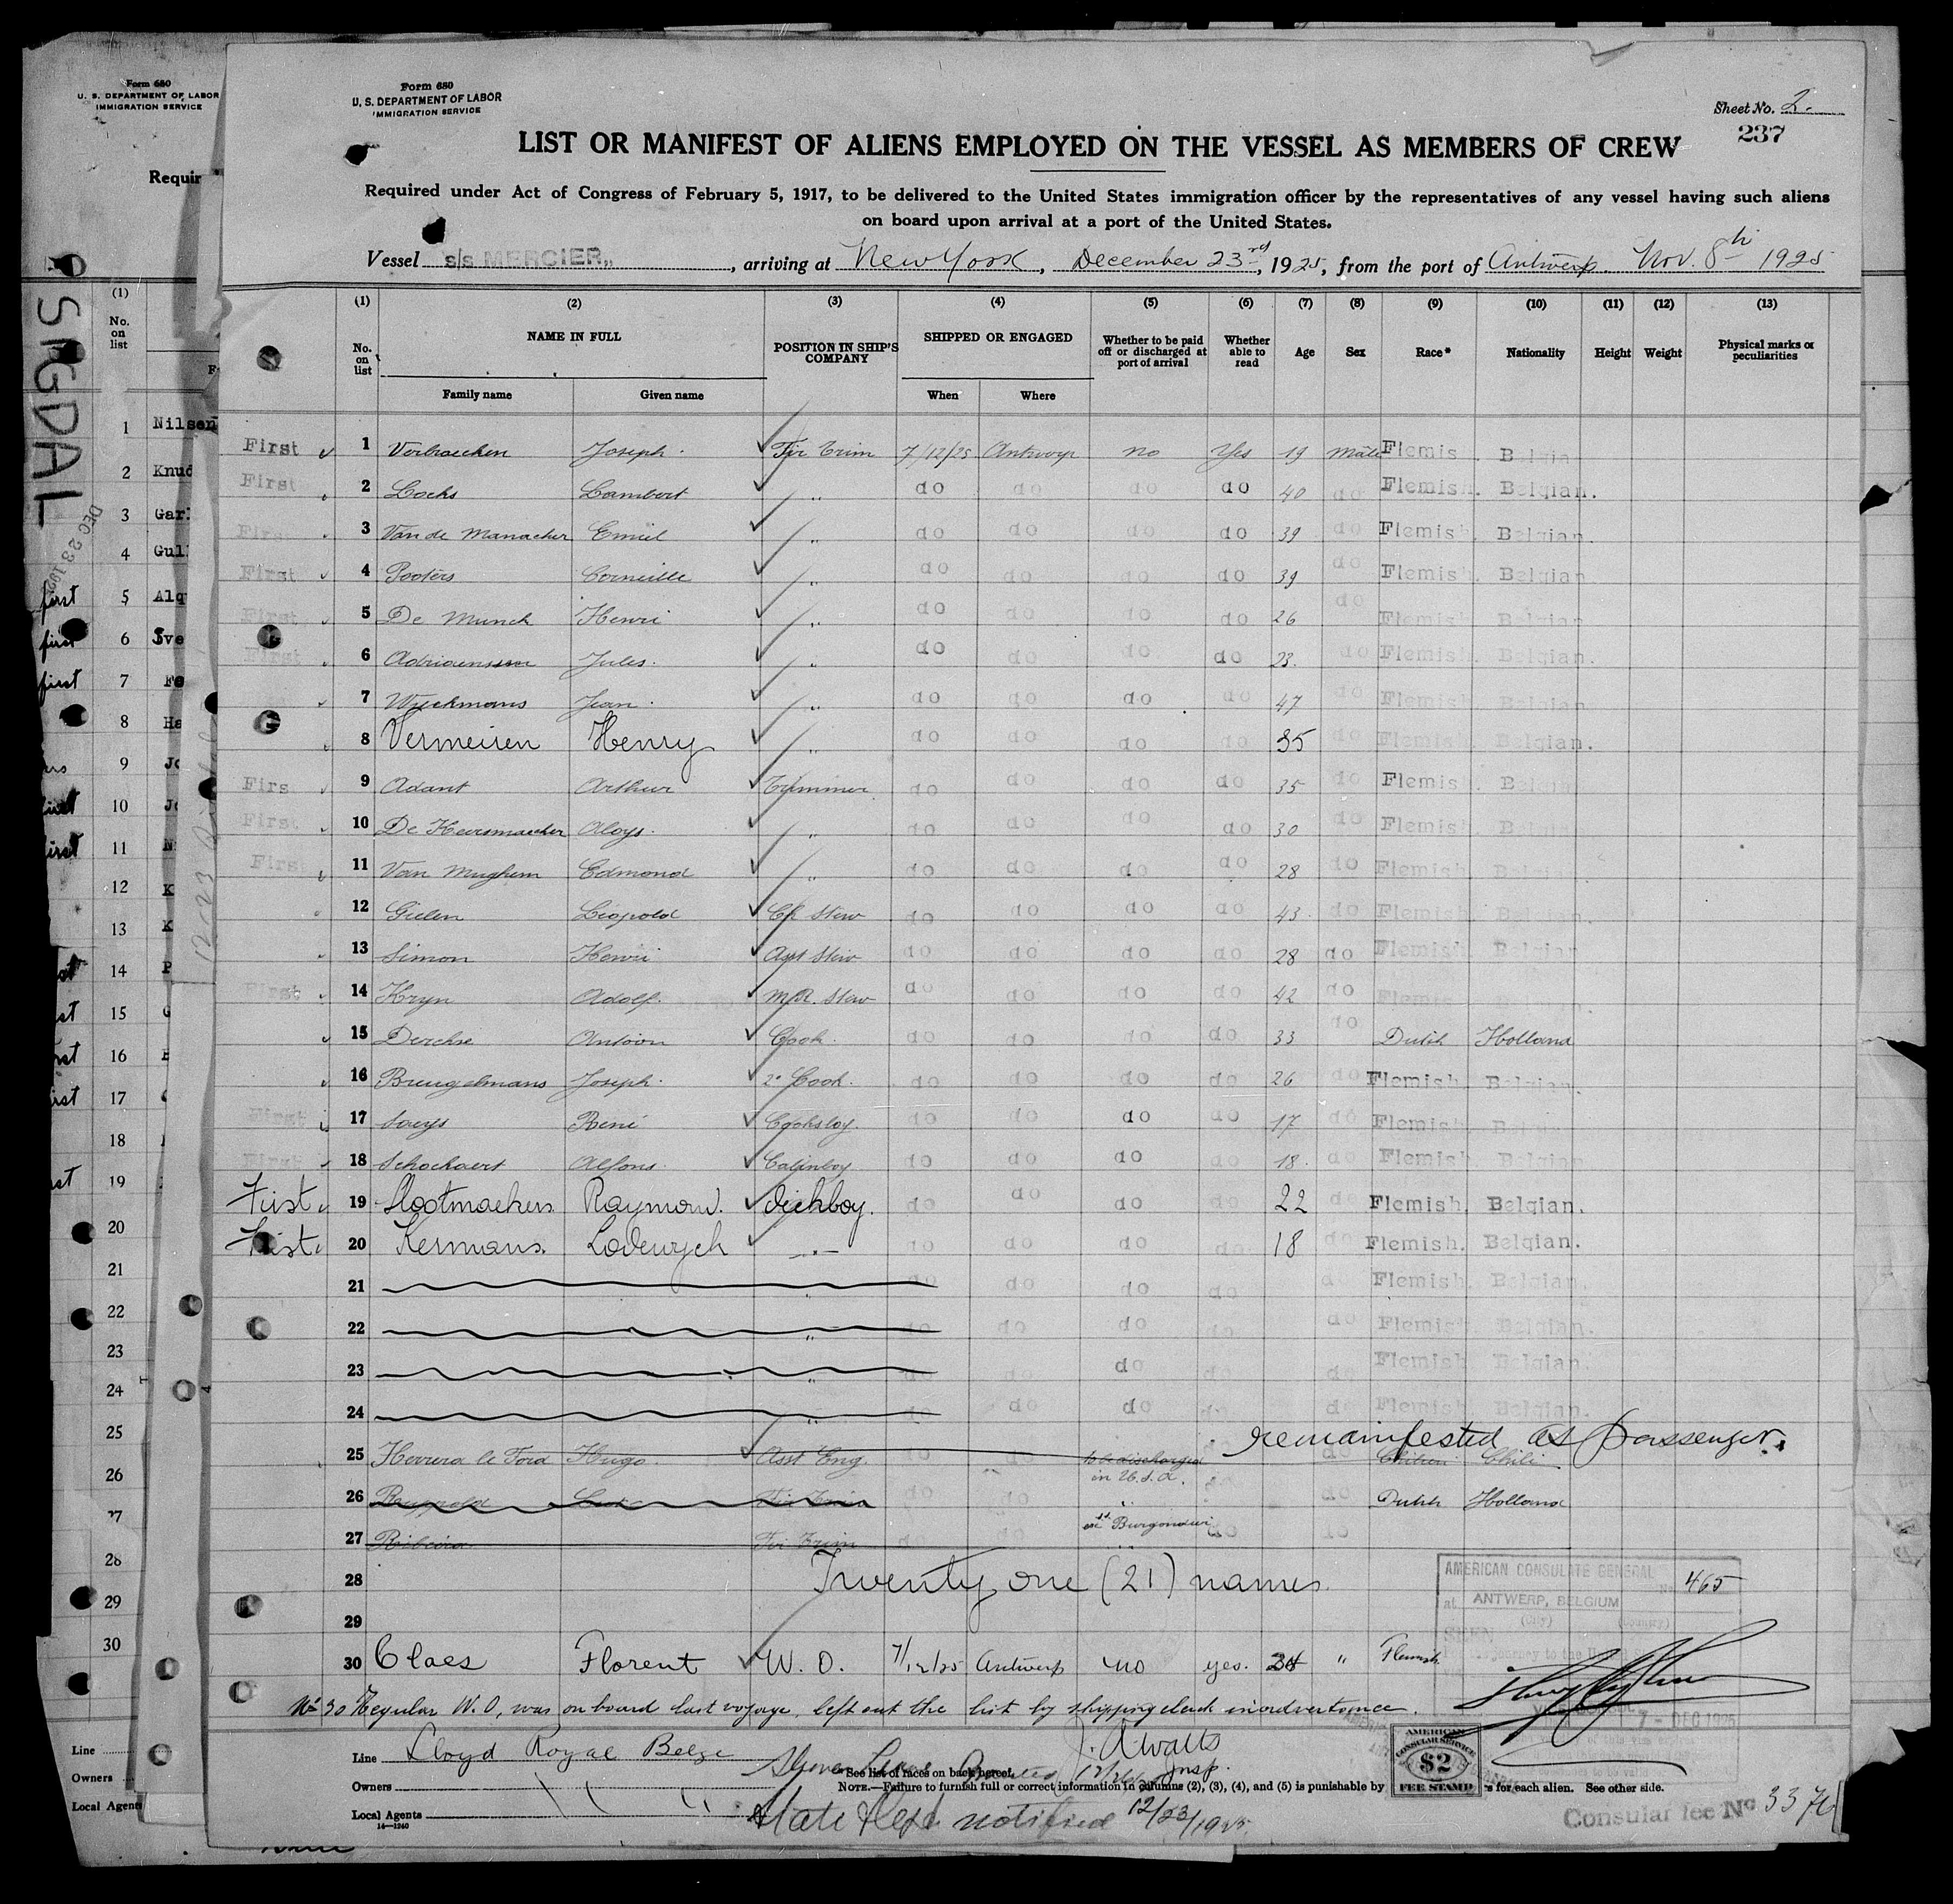 Form 680
U. S. DEPARTMENT OF LABOR
IMMIGRATION SERVICE
Requir
SNGDAL
DEC 23 192
(1)
No. on list
1 Nilsen
2 Knud
3 Garl
4 Gull
first 5 Alq
first 6 Sve
first 7 Fe
8 Ha
9 Jo
10 Jo
11 N
12 K
13 K
14 P
15 G
16
17
18
19
20
21
22
23
24
25
26
27
28
29
30
Line
Owners
Local Agents
Form 680
U. S. DEPARTMENT OF LABOR
IMMIGRATION SERVICE
Sheet No. 2.
237
LIST OR MANIFEST OF ALIENS EMPLOYED ON THE VESSEL AS MEMBERS OF CREW
Required under Act of Congress of February 5, 1917, to be delivered to the United States immigration officer by the representatives of any vessel having such aliens
on board upon arrival at a port of the United States.
Vessel s/s MERCIER, arriving at New York, December 23rd, 1925, from the port of Antwerp. Nov. 8th 1925
(1) (2) (3) (4) (5) (6) (7) (8) (9) (10) (11) (12) (13)
No. on list NAME IN FULL POSITION IN SHIP'S COMPANY SHIPPED OR ENGAGED Whether to be paid off or discharged at port of arrival Whether able to read Age Sex Race* Nationality Height Weight Physical marks or peculiarities
Family name Given name When Where
First 1 Verbraecken Joseph. Fir Trim 7/12/25 Antwerp no Yes 19 Male Flemis. Belgia
First 2 Cocks Lambert " do do do do 40 do Flemish. Belgian.
First 3 Van de Manacker Emiel " do do do do 39 do Flemish. Belgian.
First 4 Pooters Corneille " do do do do 39 do Flemish. Belgian
First 5 De Munck Henri " do do do do 26 do Flemish Belgian
First 6 Adriaenssen Jules. " do do do do 23. do Flemish. Belgian.
7 Wijckmans Jean. " do do do do 47 do Flemish. Belgian
8 Vermeiren Henry " do do do do 35 do Flemish. Belgian.
Firs 9 Adant Arthur Trimmer do do do do 35 do Flemish. Belgian
First 10 De Keersmaecker Aloys. " do do do do 30 do Flemish. Belgian
First 11 Van Mughem Edmond " do do do do 28 do Flemish Belgian
12 Gielen Leopold Ch Stew do do do do 43 do Flemish. Belgian
13 Simon Henri Asst Stew do do do do 28 do Flemish Belgian
First 14 Kryn Adolf. M.R. Stew do do do do 42 do Flemis
15 Derckse Antoon Cook. do do do do 33 do Dutch Holland
16 Breugelmans Joseph. 2° Cook. do do do do 26 do Flemish Belgian
First 17 Saeys René Cooksboy. do do do do 17 do Flemish. Belgian
First 18 Schockaert Alfons. Cabinboy do do do do 18. do Flemish Belgian
First 19 Slootmaekers Raymond. dechboy. do do do do 22 do Flemish. Belgian.
First 20 Kermans. Lodewych -"- do do do do 18 do Flemish. Belgian.
21 do do do do do Flemish. Belgian.
22 " do do do do do Flemish Belgian.
23 " do do do do do Flemish Belgian.
24 " do do do do do Flemish Belgian.
remanifested as passenger.
25 Herrera le Ford Hugo. Asst Eng. do do to be discharged in U.S.A. " do Chilien Chili
26 do do " do Dutch Holland
27 Ribeira Fir Trim do do ex ss Burgondier do do
28 Twenty one (21) names.
29
30 Claes Florent W. O. 7/12/25 Antwerp no yes. 24 " Flemish
No 30 Regular W. O, was on board last voyage, left out the list by shipping clerk inadvertance.
AMERICAN CONSULATE GENERAL
No. 465
at ANTWERP, BELGIUM
(City) (Country)
SEEN
7 - DEC 1925
Line Lloyd Royal Belge
J. A. Watts
Insp.
*See list of races on back hereof.
Owners
NOTE.—Failure to furnish full or correct information in columns (2), (3), (4), and (5) is punishable by
s for each alien. See other side.
AMERICAN
CONSULAR SERVICE
$2
FEE STAMP
Local Agents
14—1240
State Dept. notified 12/23/1925.
Consular fee No 3376